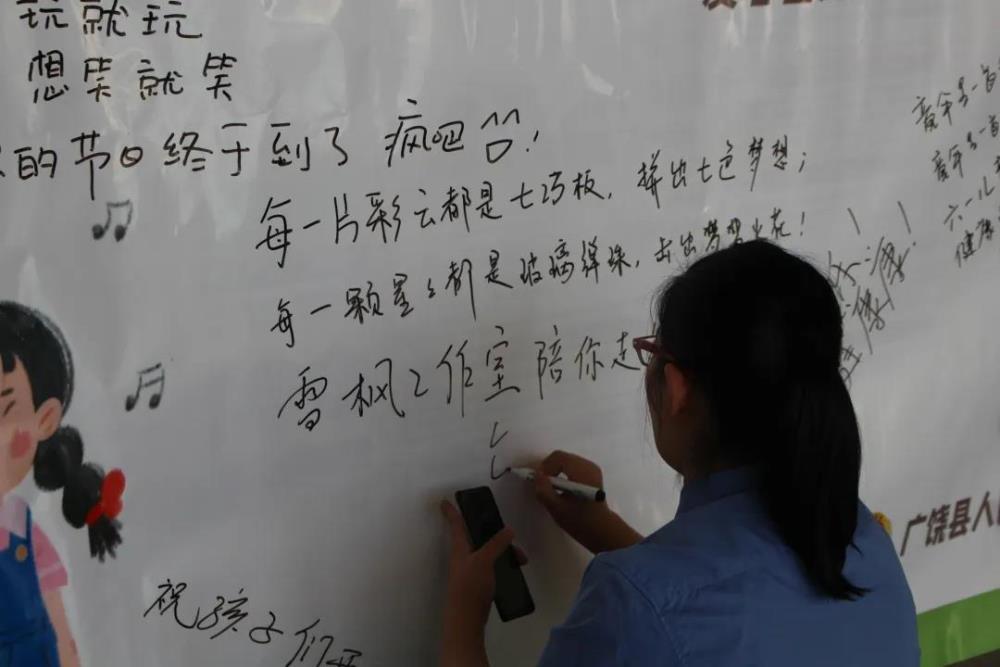 玩就玩
想笑就笑
的节日终于到了 疯吧!
每一片彩云都是七巧板,拼出七色梦想;
每一颗星星都是玻璃弹珠,击出梦想火花!
雪枫工作室陪你走
童年是一首
童年是一首
六一儿
健康
祝孩子们
广饶县人